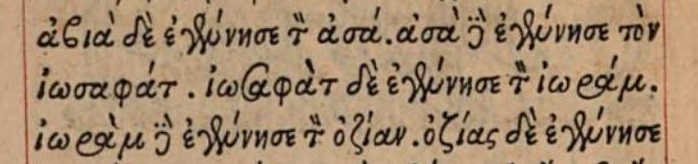 ἀβιὰ δὲ ἐγέννησε τὸν ἀσά. ἀσὰ δὲ ἐγέννησε τὸν
ἰωσαφάτ. ἰωσαφὰτ δὲ ἐγέννησε τὸν ἰωράμ.
ἰωρὰμ δὲ ἐγέννησε τὸν ὀζίαν. ὀζίας δὲ ἐγέννησε